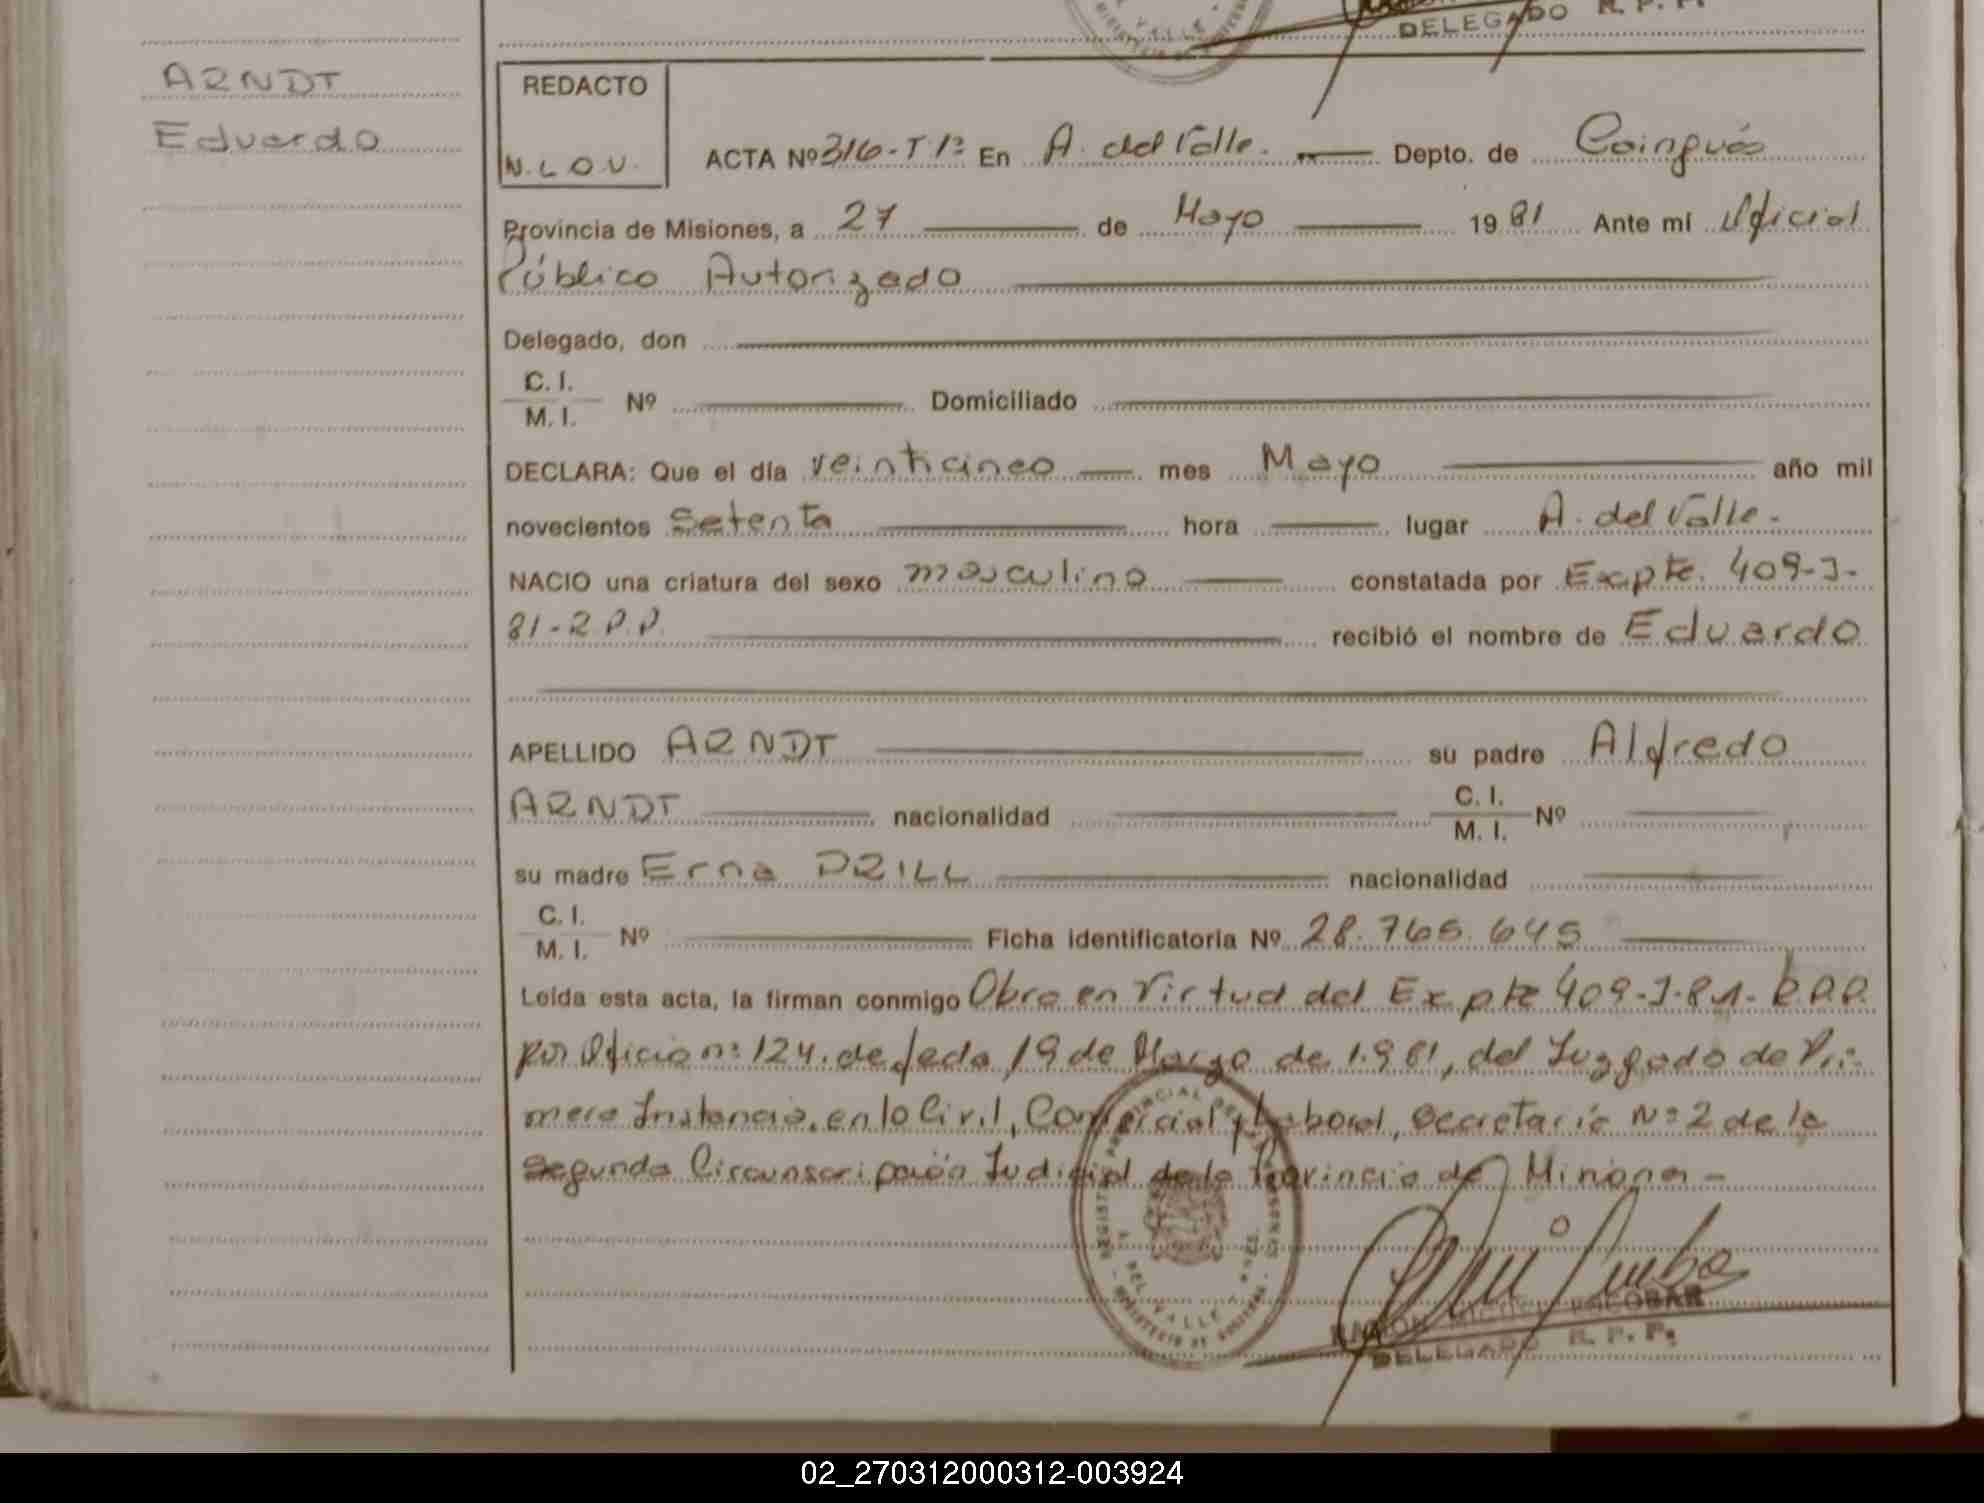 DELEGADO R. P. P.
ARNDT
Eduardo
REDACTO
N.L.O.V.
ACTA Nº 316-Tº1º En A. del Valle. Depto. de Cainguás
Provincia de Misiones, a 27 de Mayo 1981 Ante mí Oficial
Público Autorizado
Delegado, don
C. I.
M. I. Nº Domiciliado
DECLARA: Que el día veinticinco mes Mayo año mil
novecientos Setenta hora lugar A. del Valle.
NACIO una criatura del sexo masculino constatada por Expte. 409-J-
81-R.P.P. recibió el nombre de Eduardo
APELLIDO ARNDT su padre Alfredo
ARNDT nacionalidad C. I.
M. I. Nº
su madre Erna DRILL nacionalidad
C. I.
M. I. Nº Ficha identificatoria Nº 28.765.645
Leída esta acta, la firman conmigo Obra en Virtud del Expte 409-J-81-R.P.P.
por Oficio nº 124. de feda 19 de Marzo de 1.981, del Juzgado de Pri-
mera Instancia. en lo Civil, Comercial y Laboral, Secretaría Nº 2 de la
Segunda Circunscripción Judicial de la Provincia de Misiones -
REGISTRO PROVINCIAL DE LAS PERSONAS
DEL VALLE
RAMON MIGUEL ESCOBAR
DELEGADO R. P. P.
02_270312000312-003924